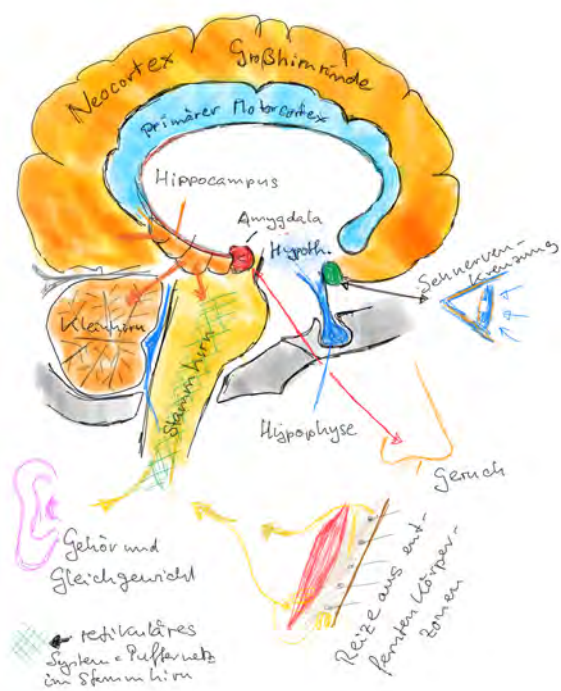 Neocortex
Großhirnrinde
primärer Motorcortex
Hippocampus
Amygdala
Hypoth.
Sehnerven-
kreuzung
Kleinhirn
Stammhirn
Hypophyse
Geruch
Gehör und
Gleichgewicht
Reize aus ent-
fernten Körper-
zonen
retikuläres
System = Puffernetz
im Stammhirn